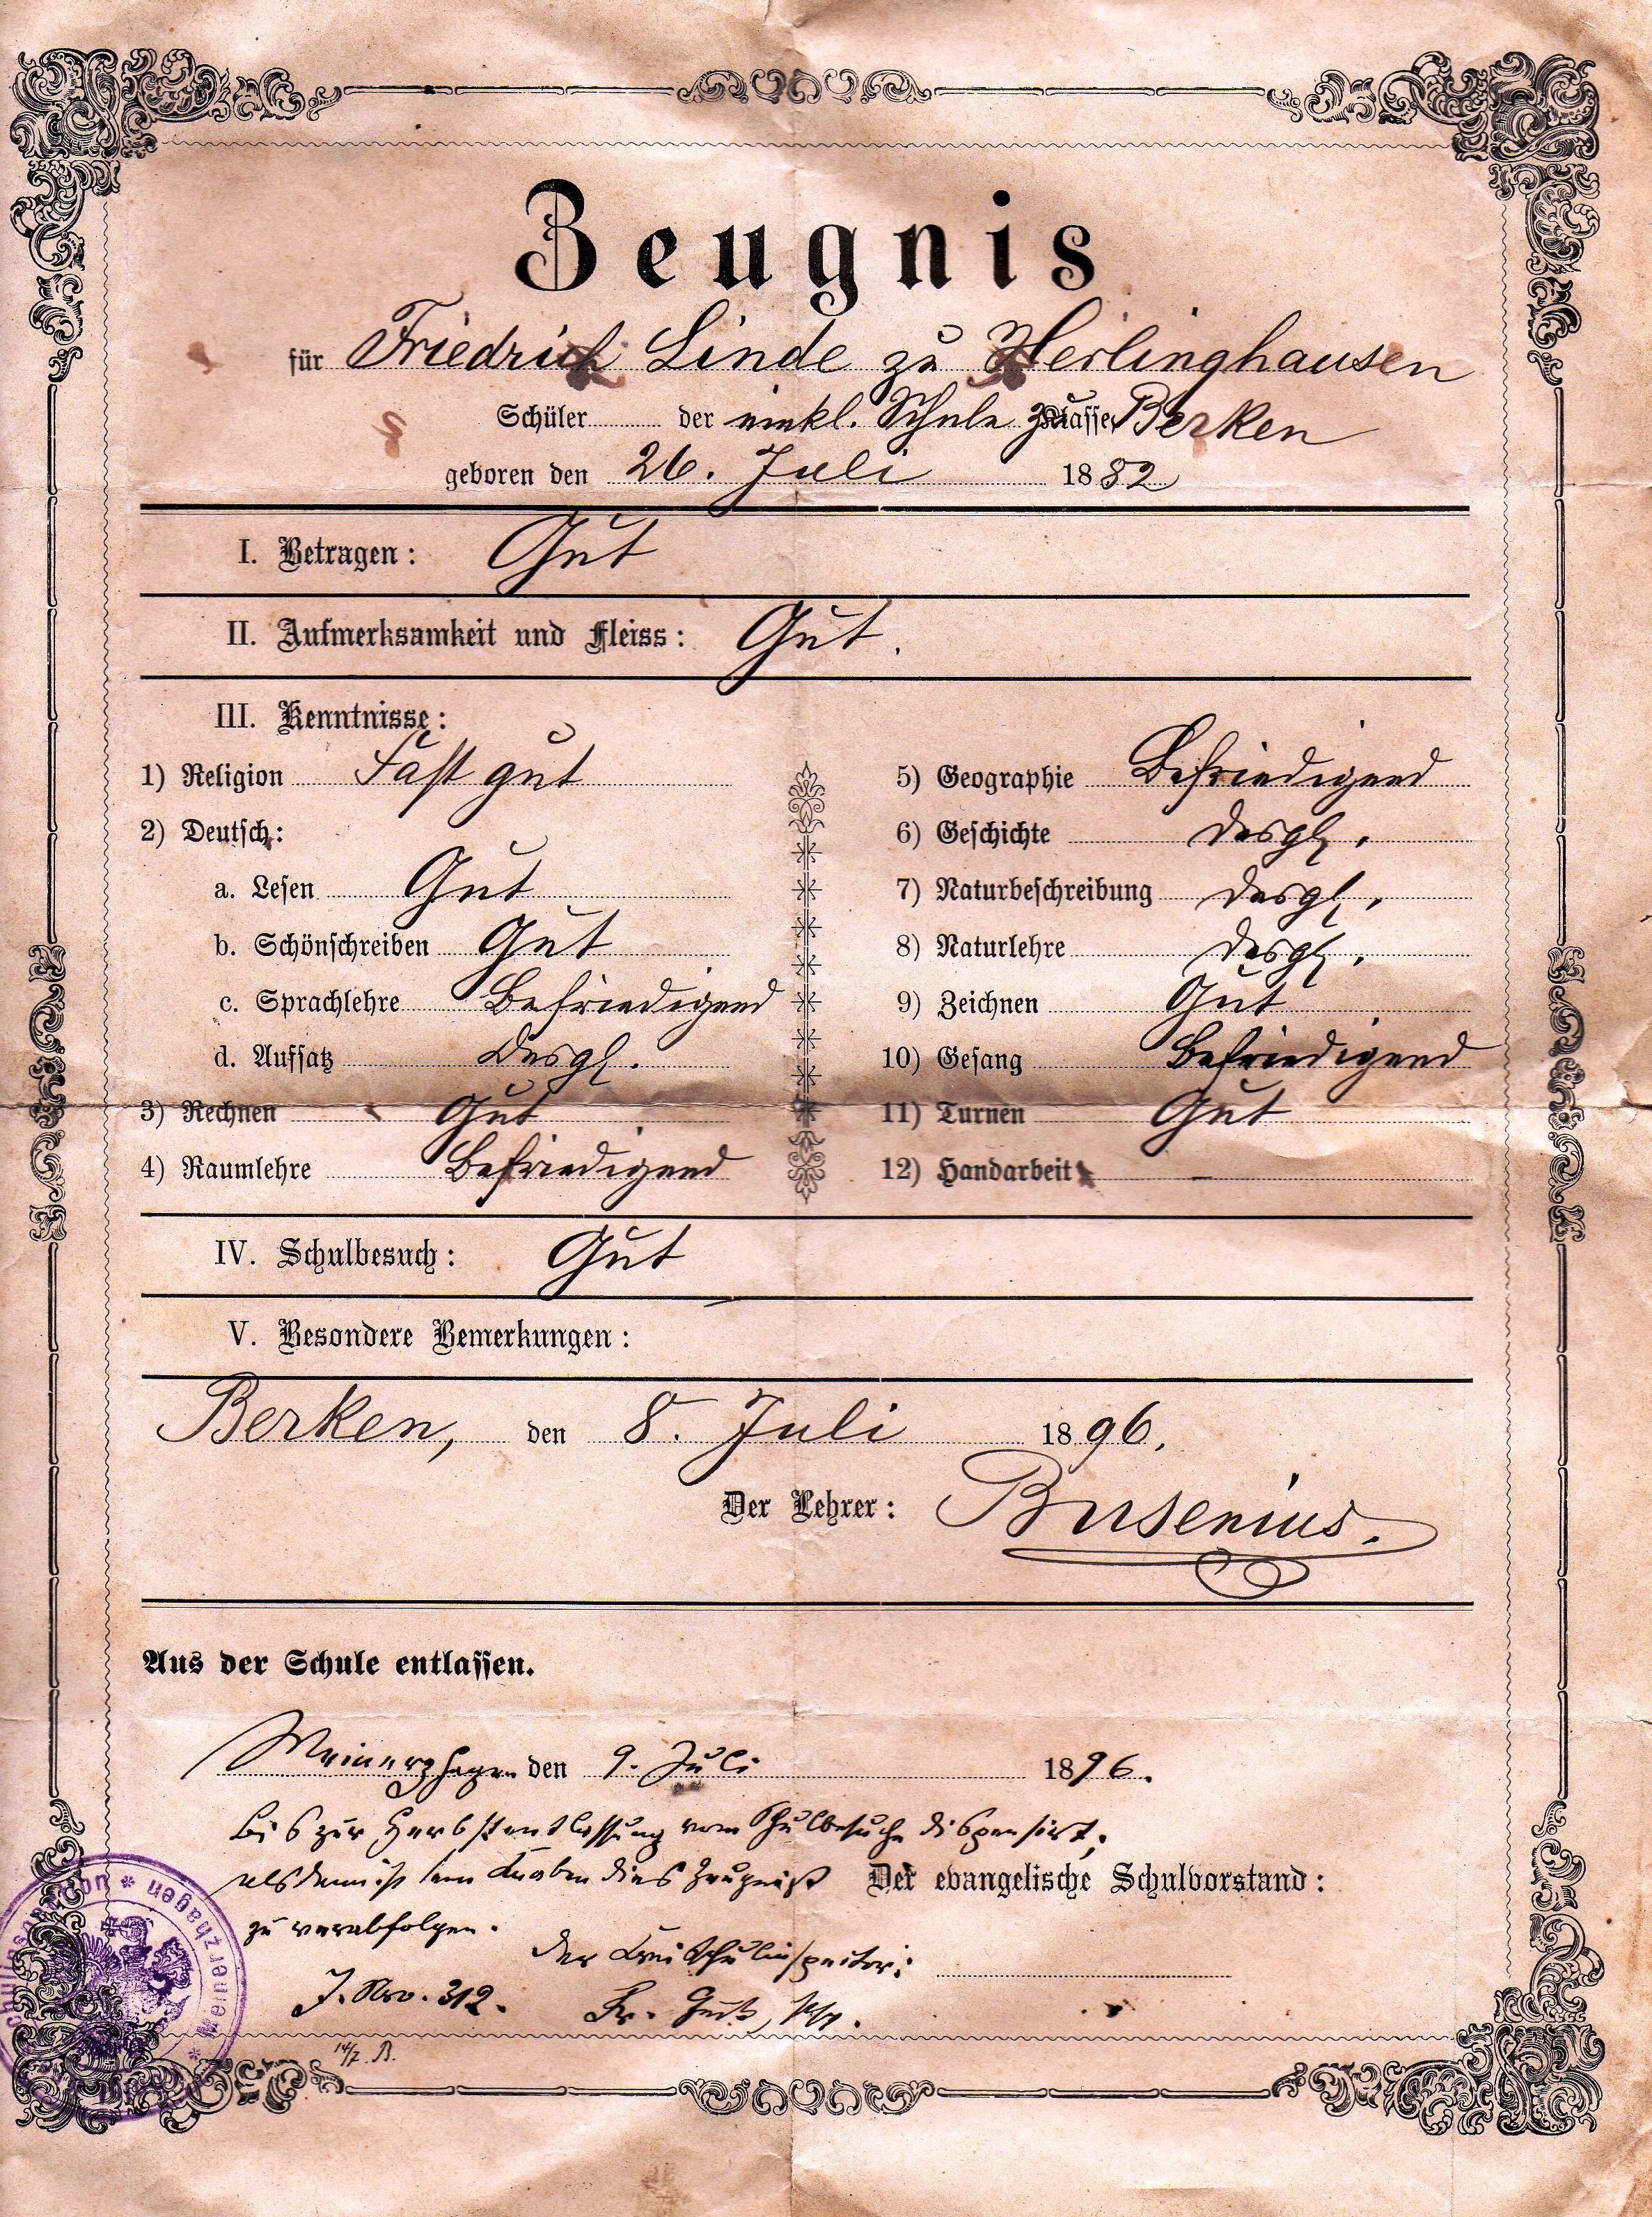 Zeugnis
für Friedrich Linde zu Herlinghausen
Schüler der einkl. Schule zu Klasse Berken
geboren den 26. Juli 1882
I. Betragen: Gut
II. Aufmerksamkeit und Fleiss: Gut.
III. Kenntnisse:
1) Religion Fast gut
2) Deutsch:
a. Lesen Gut
b. Schönschreiben Gut
c. Sprachlehre Befriedigend
d. Aufsatz Desgl.
3) Rechnen Gut
4) Raumlehre Befriedigend
5) Geographie Befriedigend
6) Geschichte Desgl.
7) Naturbeschreibung Desgl.
8) Naturlehre Desgl.
9) Zeichnen Gut
10) Gesang Befriedigend
11) Turnen Gut
12) Handarbeit –
IV. Schulbesuch: Gut
V. Besondere Bemerkungen:
Berken, den 8. Juli 1896.
Der Lehrer: Busenius.
Aus der Schule entlassen.
Meinerzhagen den 9. Juli 1896.
Bis zur Herbstentlassung vom Schulbesuche dispensirt,
alsdann ist dem Knaben dies Zeugniß
zu verabfolgen.
Der evangelische Schulvorstand:
Der Kreisschulinspector:
J. Nro. 312.
14/7. B.
Meinerzhagen